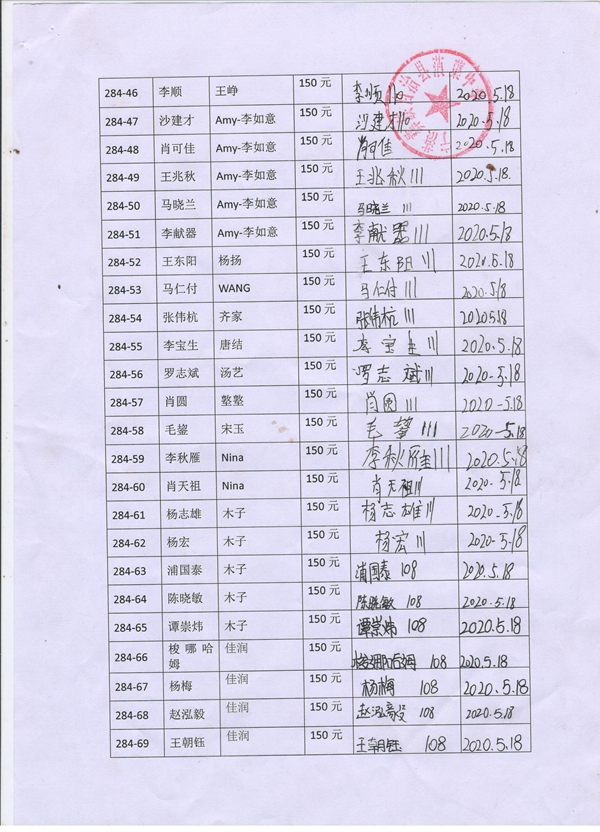 284-46 李顺 王峥 150元 李顺 110 2020.5.18
284-47 沙建才 Amy-李如意 150元 沙建才 110 2020.5.18
284-48 肖可佳 Amy-李如意 150元 肖可佳 2020.5.18
284-49 王兆秋 Amy-李如意 150元 王兆秋 111 2020.5.18
284-50 马晓兰 Amy-李如意 150元 马晓兰 111 2020.5.18
284-51 李献器 Amy-李如意 150元 李献器 111 2020.5.18
284-52 王东阳 杨扬 150元 王东阳 111 2020.5.18
284-53 马仁付 WANG 150元 马仁付 111 2020.5.18
284-54 张伟杭 齐家 150元 张伟杭 111 2020.5.18
284-55 李宝生 唐结 150元 李宝生 111 2020.5.18
284-56 罗志斌 汤艺 150元 罗志斌 111 2020-5.18
284-57 肖圆 150元 肖圆 111 2020-5.18
284-58 毛鋆 宋玉 150元 毛鋆 111 2020-5.18
284-59 李秋雁 Nina 150元 李秋雁 111 2020.5.18
284-60 肖天祖 Nina 150元 肖天祖 111 2020.5.18
284-61 杨志雄 木子 150元 杨志雄 111 2020-5.18
284-62 杨宏 木子 150元 杨宏 111 2020-5.18
284-63 浦国泰 木子 150元 浦国泰 108 2020.5.18
284-64 陈晓敏 木子 150元 陈晓敏 108 2020.5.18
284-65 谭崇炜 木子 150元 谭崇炜 108 2020.5.18
284-66 梭哪哈姆 佳润 150元 梭哪哈姆 108 2020.5.18
284-67 杨梅 佳润 150元 杨梅 108 2020.5.18
284-68 赵泓毅 佳润 150元 赵泓毅 108 2020.5.18
284-69 王朝钰 佳润 150元 王朝钰 108 2020.5.18